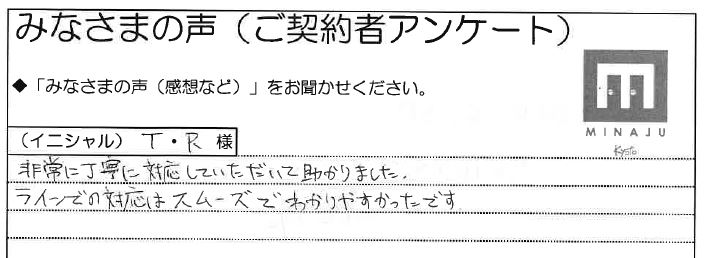 みなさまの声（ご契約者アンケート）
◆「みなさまの声（感想など）」をお聞かせください。
MINAJU
Kyoto
（イニシャル） T・R 様
非常に丁寧に対応していただいて助かりました.
ラインでの対応はスムーズでわかりやすかったです.